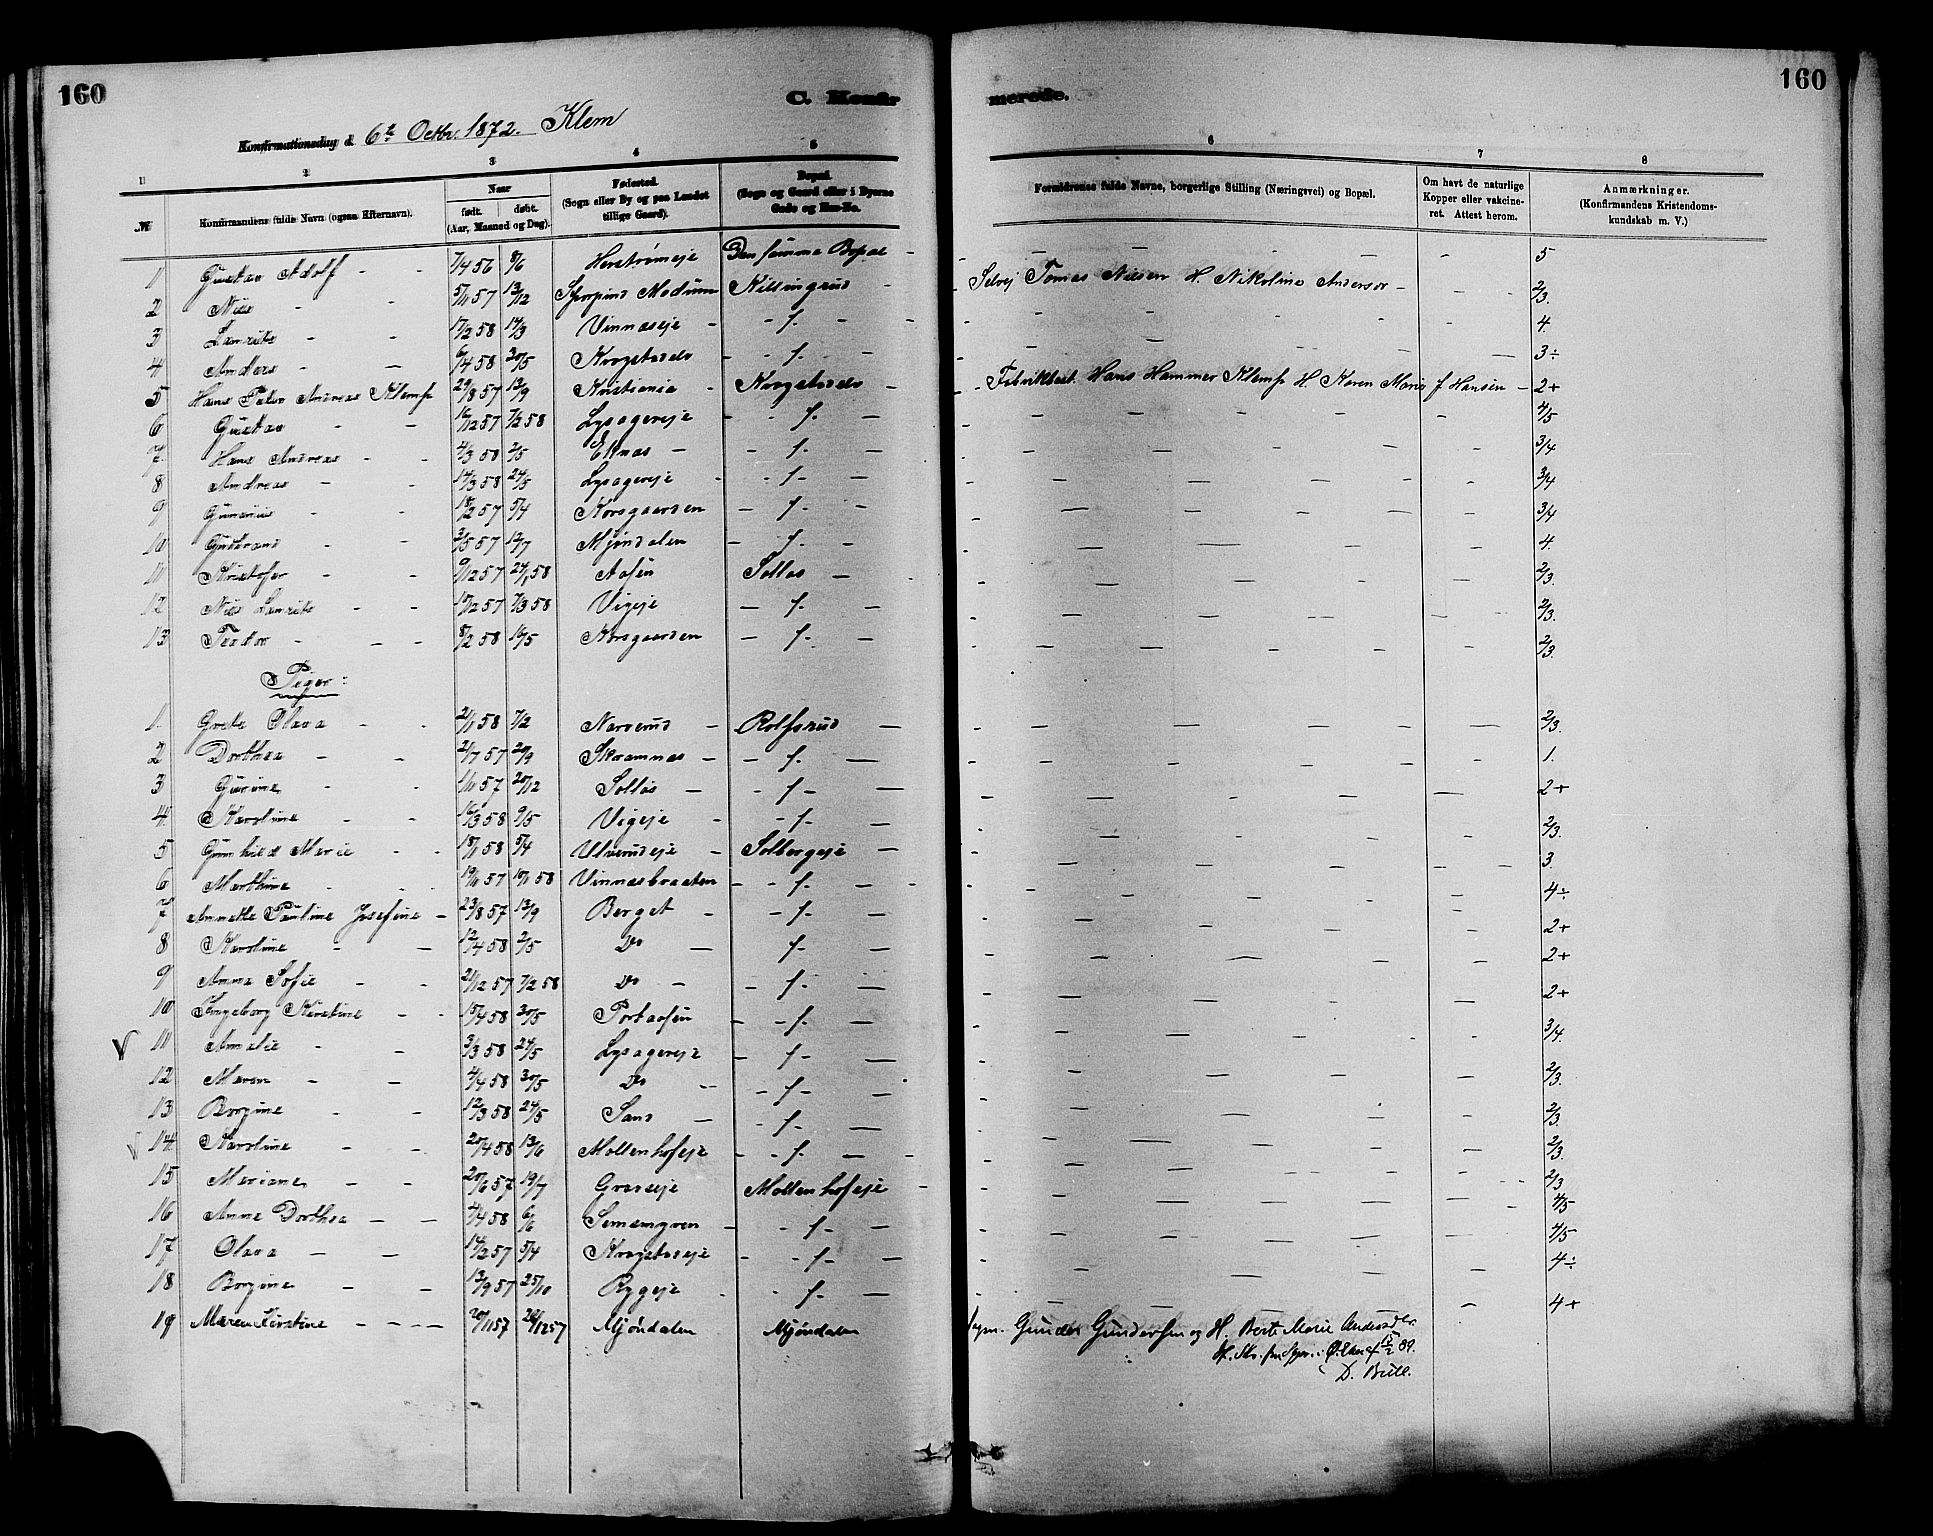 160
C. Konfir
merede.
160
Konfirmationsdag d. 6te Octbr. 1872. Klem
1 2 3 4 5 6 7 8
№ Konfirmandens fulde Navn (ogsaa Efternavn). Naar født. døbt. (Aar, Maaned og Dag). Fødested. (Sogn eller By og paa Landet tillige Gaard). Bopæl. (Sogn og Gaard eller i Byerne Gade og Hus-No. Forældrenes fulde Navne, borgerlige Stilling (Næringsvei) og Bopæl. Om havt de naturlige Kopper eller vakcineret. Attest herom. Anmærkninger. (Konfirmandens Kristendomskundskab m. V.)
1 Gustav Adolf - - 7/4 56 8/6 Den samme Bopæl - 5
2 Nils - - 5/11 57 13/12 Modum Selvej Tomas Nilsen H. Nikoline Andersdr - 2/3.
3 Lauritz - - 17/2 58 14/3 Vinnæseje - - f. - 4.
4 Anders - - 6/4 58 30/5 - f. - 3÷
5 Hans Peter Andreas Klemp 29/8 57 13/9 Kristiania - Fabrikbest. Hans Hammer Klemp H. Karen Marie f. Hansen - 2+
6 Gustav - - 16/12 57 7/2 58 Lysagereje - - f. 4/5
7. Hans Andreas - - 4/3 58 2/5 Eknæs - - f. 3/4
8 Andreas - - 14/3 58 24/5 Lysagereje - f - 3/4
9 - - 18/2 57 5/4 Korsgaarden - f - 3/4
10 Gulbrand - - 2/5 57 12/7 Mjøndalen - f - 4.
11 Kristofer - - 9/12 57 24/1 58 Aasen Solløs - 2/3.
12 Nils Lauritz - - 15/12 57 7/3 58 Vigeje - f. - 2/3.
13 Teodor - - - 8/2 58 16/5 Korsgaarden - f. - 2/3.
Piger:
1. Grete Olava - - 21/1 58 7/2 Narverud - Rolfsrud - 2/3.
2 Dorthea - - 21/7 57 20/9 Skramnæs - - f. - 1.
3 Gurine - - 1/11 57 20/12 Solløs - - f - 2+
4. Karoline - - 16/3 58 9/5 Vigeje - - f - 2/3.
5 Gunhild Marie - - 18/1 58 5/4 Ulverudeje - Solbergeje - 3.
6 Marthine - - 19/11 57 10/1 58 Vinnæsbraaten - - f - 4÷
7 Annette Pauline Josefine - 23/8 57 13/9 Berget - - f - 2+
8 Karoline - - 12/4 58 2/5 Do - f - 2+
9 Anna Sofie - - 21/12 57 7/2 58 Do - - f - 2+
10 Ingeborg Kirstine - - 15/4 58 30/5 Portaasen - - f - 3/4.
11 Amalie - - 3/3 58 24/5 Lysagereje - f - 2/3.
12 Maren - - 4/4 58 30/5 Do - - f - 2/3.
13 Borgine - - 12/3 58 24/5 Sand - - f - 2/3.
14. Karoline - - 20/4 58 13/6 Møllenhofeje - - f - 2/3
15 Mariane - - 20/6 57 19/7 Møllenhofeje - 4/5
16 Anne Dorthea - - 4/4 58 6/6 - f - 4/5
17 Olava - - 14/2 57 5/4 Krogstadeje - - f - 4÷
18 Borgine - - 13/9 57 25/10 Rygeje - - f - 4+
19 Maren Kirstine - - - - 20/11 57 26/12 57 Mjøndalen - Mjøndalen Gunder Gundersen og H. Berte Marie Andersdr.
15/2 89.
D. Bull.